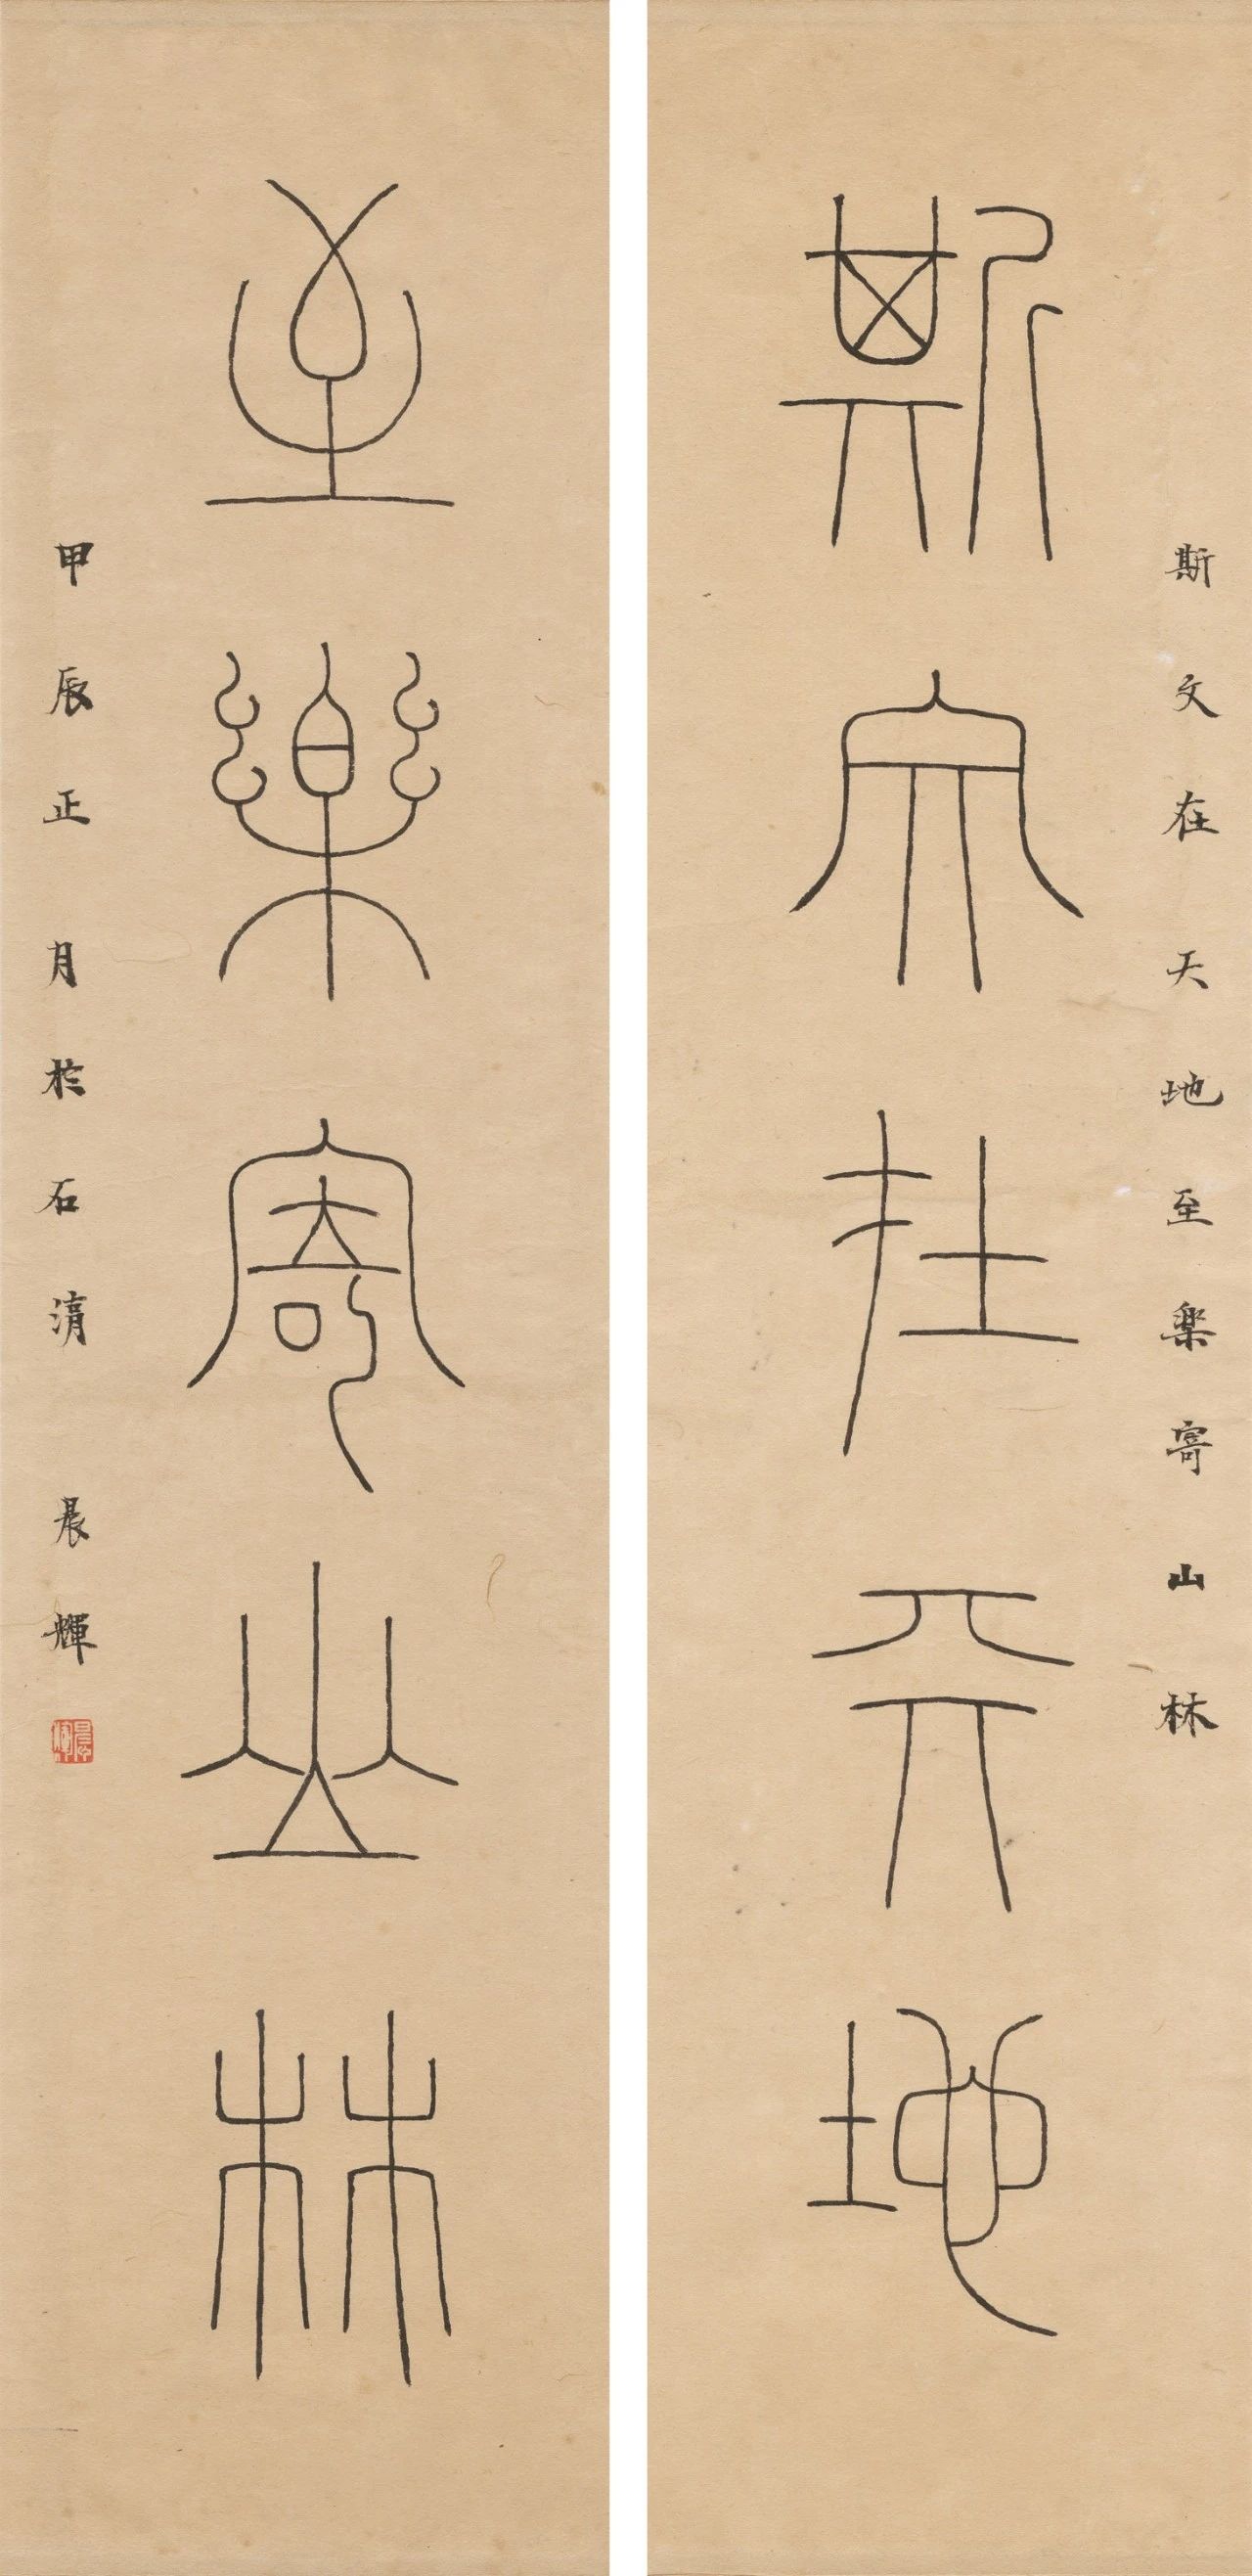 斯文在天地
斯文在天地至樂寄山林
至樂寄山林
甲辰正月於石清 晨輝
晨輝